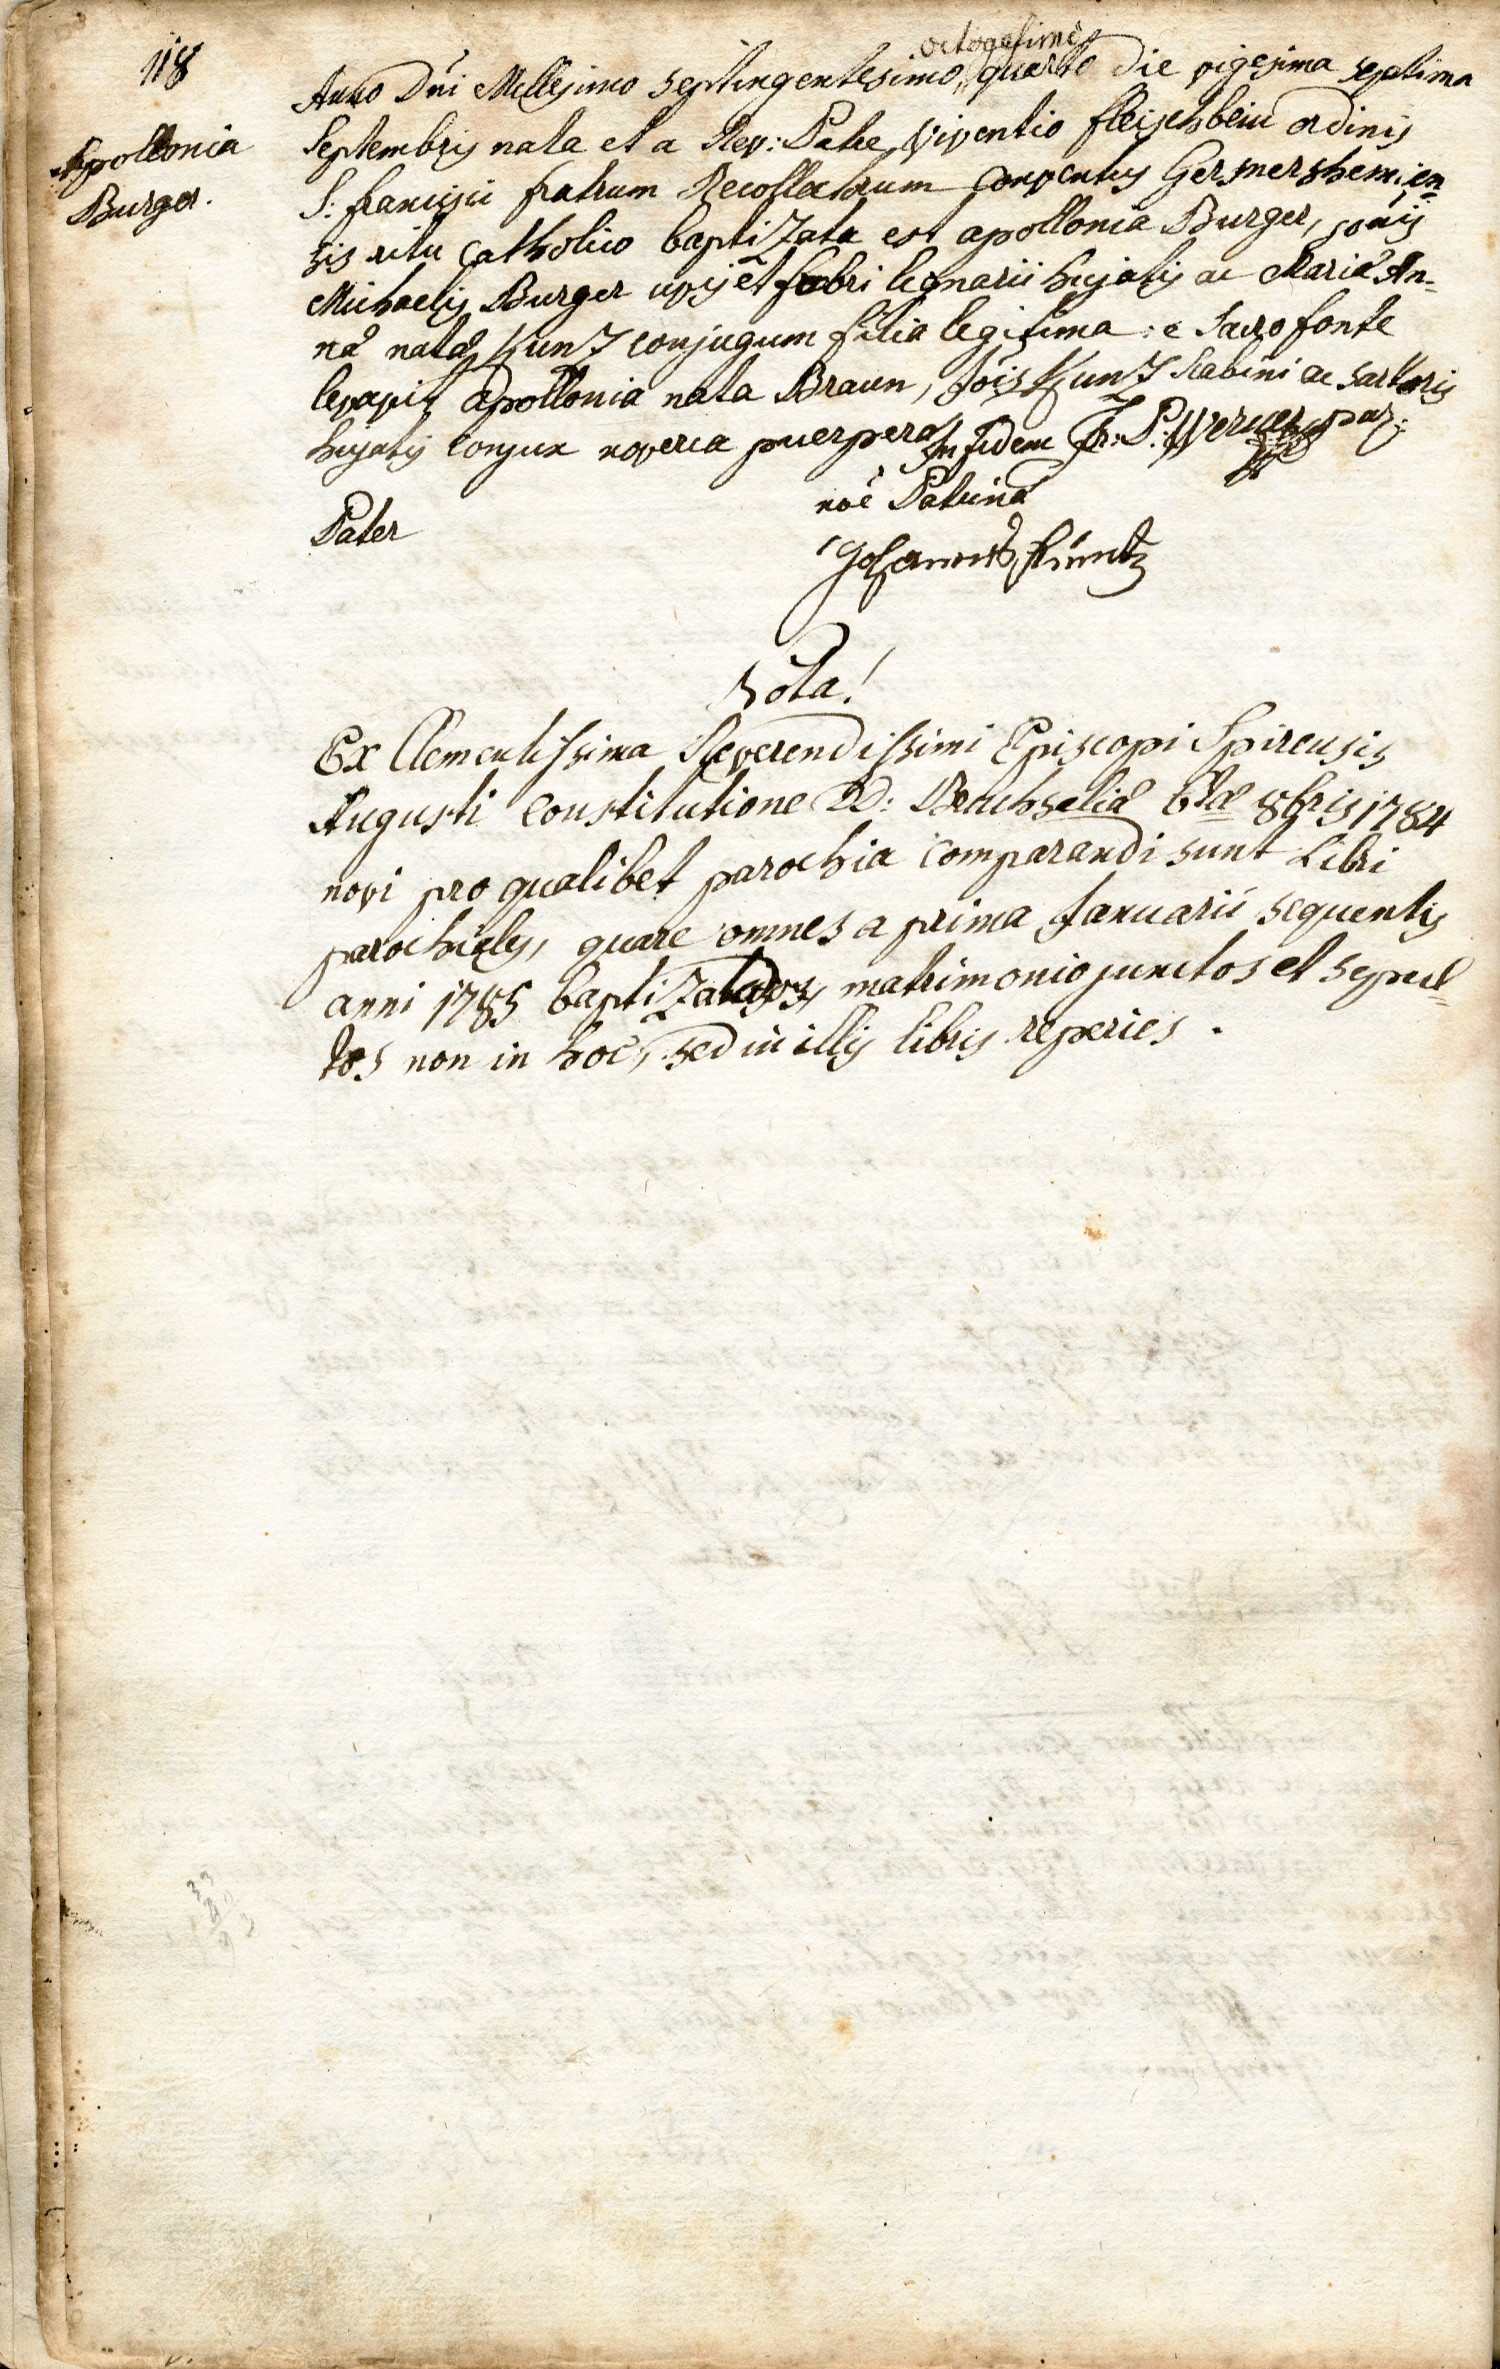 118
octogesimo
Anno Dni Millesimo septingentesimo quarto die vigesima septima
Apollonia
Burger.
Septembris nata et a Rev: Patre Viventio fleischbein ordinis
S: francisci fratrum Recollectorum conventus Germershemien=
sis ritu catholico baptizata est apollonia Burger,
Michaelis Burger civis et fabri lignarii hujatis ac Mariæ An=
næ natæ Kunz conjugum filia legitima: e Sacro fonte
levavit apollonia nata Braun, Jois Kunz Scabini ac sartoris
hujatis conjux noverca puerperæ In fidem Fr: P: Werner par:
Pater
noe Patrinæ
Johannes Kuntz
Nota!
Ex Clementissima Reverendissimi Episcopi Spirensis
Augusti Constitutione DD: Bruchsaliæ 6ta 8bris 1784
novi pro qualibet parochia comparandi sunt Libri
parochiales, quare omnes a prima Januarii sequentis
anni 1785 baptizatos, matrimonio junctos et sepul=
tos non in hoc, sed in illis libris reperies.